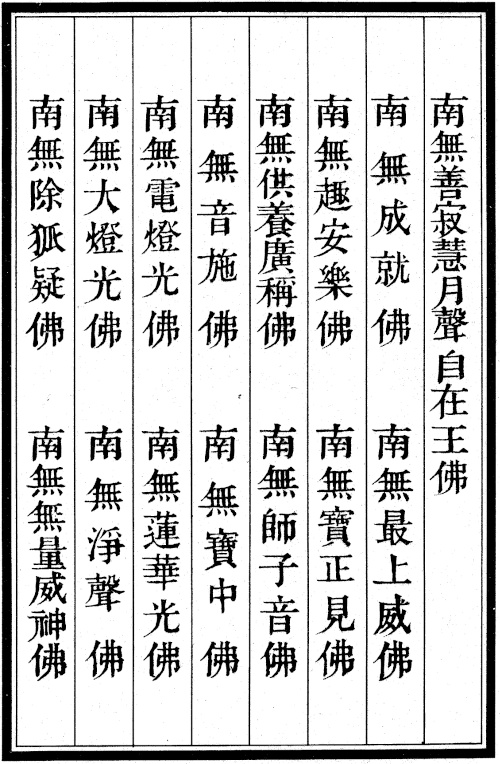 南無善寂慧月聲自在王佛
南無成就佛 南無最上威佛
南無趣安樂佛 南無寶正見佛
南無供養廣稱佛 南無師子音佛
南無音施佛 南無寶中佛
南無電燈光佛 南無蓮華光佛
南無大燈光佛 南無淨聲佛
南無除狐疑佛 南無無量威神佛